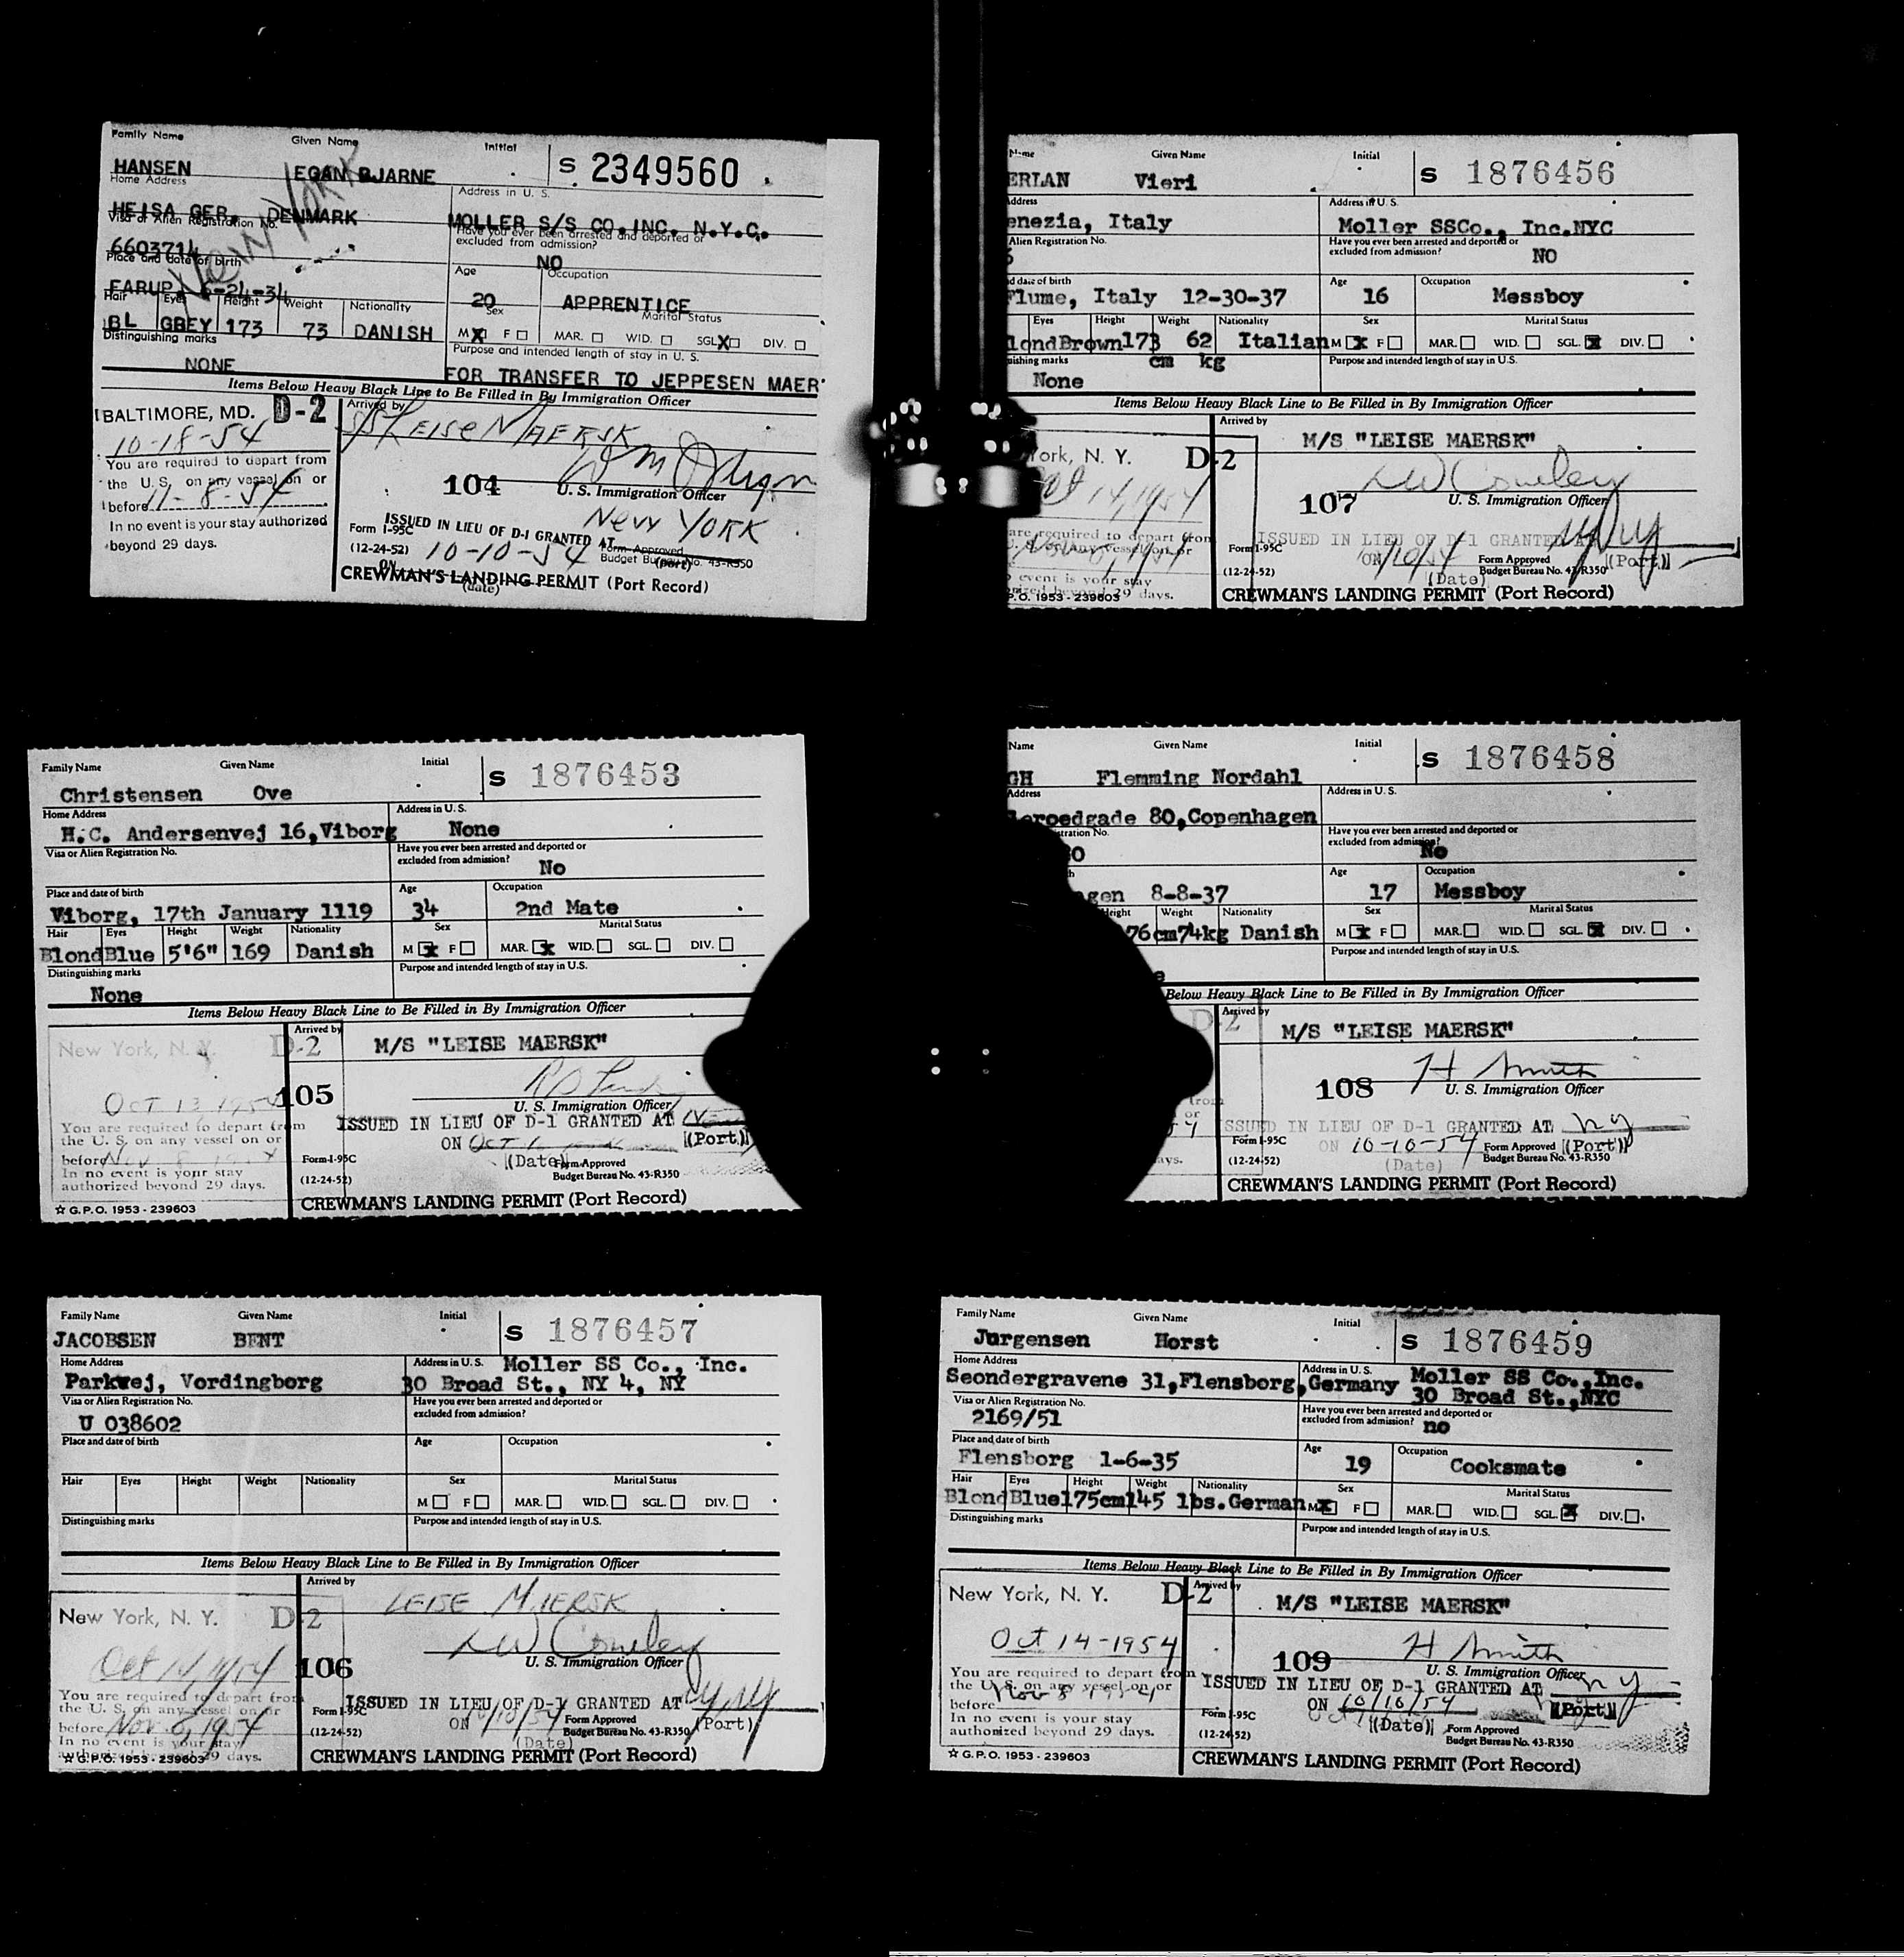 Family Name Given Name Initial S 2349560
HANSEN EGAN BJARNE
Home Address Address in U. S.
HEISA GER. DENMARK MOLLER S/S CO.INC. N.Y.C.
Visa or Alien Registration No. Have you ever been arrested and deported or excluded from admission?
6603714 NO
Place and date of birth Age Occupation
FARUP 6-24-34 20 APPRENTICE
New York
Hair Eyes Height Weight Nationality Sex Marital Status
BL GREY 173 73 DANISH M X F MAR. WID. SGL X DIV.
Distinguishing marks Purpose and intended length of stay in U. S.
NONE FOR TRANSFER TO JEPPESEN MAER
Items Below Heavy Black Line to Be Filled in By Immigration Officer
BALTIMORE, MD. D-2 Arrived by
10-18-54 LEISE MAERSK
You are required to depart from
the U. S. on any vessel on or
before 11-8-54
In no event is your stay authorized
beyond 29 days.
104 U. S. Immigration Officer
ISSUED IN LIEU OF D-1 GRANTED AT New YORK
Form I-95C
(12-24-52) 10-10-54 Form Approved
Budget Bureau No. 43-R350
ON (date) (port)
CREWMAN'S LANDING PERMIT (Port Record)
Name Given Name Initial S 1876456
ERLAN Vieri
Address Address in U. S.
enezia, Italy Moller SSCo., Inc.NYC
Alien Registration No. Have you ever been arrested and deported or excluded from admission?
NO
d date of birth Age Occupation
Flume, Italy 12-30-37 16 Messboy
Eyes Height Weight Nationality Sex Marital Status
londBrown173 62 Italian M X F MAR. WID. SGL. X DIV.
cm kg
uishing marks Purpose and intended length of stay in U.S.
None
Items Below Heavy Black Line to Be Filled in By Immigration Officer
Arrived by
M/S "LEISE MAERSK"
York, N. Y. D-2
Oct 14, 1954
LW Conley
107 U. S. Immigration Officer
are required to depart from
any vessel on or
event is your stay
beyond 29 days.
P.O. 1953 - 239603
ISSUED IN LIEU OF D-1 GRANTED AT NY
Form I-95C ON 10/10/54 Form Approved (Port)
(12-24-52) (Date) Budget Bureau No. 43-R350
CREWMAN'S LANDING PERMIT (Port Record)
Family Name Given Name Initial S 1876453
Christensen Ove
Home Address Address in U. S.
H.C. Andersenvej 16,Viborg None
Visa or Alien Registration No. Have you ever been arrested and deported or excluded from admission?
No
Place and date of birth Age Occupation
Viborg, 17th January 1119 34 2nd Mate
Hair Eyes Height Weight Nationality Sex Marital Status
Blond Blue 5'6" 169 Danish M X F MAR. X WID. SGL. DIV.
Distinguishing marks Purpose and intended length of stay in U.S.
None
Items Below Heavy Black Line to Be Filled in By Immigration Officer
Arrived by
New York, N. Y. D-2 M/S "LEISE MAERSK"
Oct 13, 1954 105
U. S. Immigration Officer
You are required to depart from
the U. S. on any vessel on or
before Nov 8 1954
In no event is your stay
authorized beyond 29 days.
ISSUED IN LIEU OF D-1 GRANTED AT
ON Oct (Port)
Form I-95C (Date) Form Approved
(12-24-52) Budget Bureau No. 43-R350
☆ G.P.O. 1953 - 239603 CREWMAN'S LANDING PERMIT (Port Record)
Name Given Name Initial S 1876458
GH Flemming Nordahl
Address Address in U. S.
eroedgade 80,Copenhagen
stration No. Have you ever been arrested and deported or excluded from admission?
80 No
Age Occupation
agen 8-8-37 17 Messboy
Height Weight Nationality Sex Marital Status
76cm74kg Danish M X F MAR. WID. SGL. X DIV.
Purpose and intended length of stay in U.S.
Below Heavy Black Line to Be Filled in By Immigration Officer
D-2 Arrived by
M/S "LEISE MAERSK"
H Smith
108 U. S. Immigration Officer
ISSUED IN LIEU OF D-1 GRANTED AT NY
Form I-95C ON 10-10-54 Form Approved (Port)
(12-24-52) (Date) Budget Bureau No. 43-R350
CREWMAN'S LANDING PERMIT (Port Record)
Family Name Given Name Initial S 1876457
JACOBSEN BENT
Home Address Address in U. S. Moller SS Co., Inc.
Parkvej, Vordingborg 30 Broad St., NY 4, NY
Visa or Alien Registration No. Have you ever been arrested and deported or excluded from admission?
U 038602
Place and date of birth Age Occupation
Hair Eyes Height Weight Nationality Sex Marital Status
M F MAR. WID. SGL. DIV.
Distinguishing marks Purpose and intended length of stay in U.S.
Items Below Heavy Black Line to Be Filled in By Immigration Officer
Arrived by
LEISE MAERSK
New York, N. Y. D-2
LW Conley
Oct 14, 1954 106 U. S. Immigration Officer
You are required to depart from
the U. S. on any vessel on or
before Nov. 8, 1954
In no event is your stay
authorized beyond 29 days.
ISSUED IN LIEU OF D-1 GRANTED AT NY, NY
Form I-95C ON 10/10/54 (Port)
(12-24-52) (Date) Budget Bureau No. 43-R350
☆ G.P.O. 1953 - 239603 CREWMAN'S LANDING PERMIT (Port Record)
Family Name Given Name Initial S 1876459
Jurgensen Horst
Home Address Address in U. S. Moller SS Co.,Inc.
Seondergravene 31,Flensborg,Germany 30 Broad St.,NYC
Visa or Alien Registration No. Have you ever been arrested and deported or excluded from admission?
2169/51 no
Place and date of birth Age Occupation
Flensborg 1-6-35 19 Cooksmate
Hair Eyes Height Weight Nationality Sex Marital Status
Blond Blue175cm145 lbs.German M X F MAR. WID. SGL. X DIV.
Distinguishing marks Purpose and intended length of stay in U.S.
Items Below Heavy Black Line to Be Filled in By Immigration Officer
New York, N. Y. D-2 Arrived by
M/S "LEISE MAERSK"
Oct 14-1954 H Smith
109 U. S. Immigration Officer
You are required to depart from
the U. S. on any vessel on or
before Nov 8 1954
In no event is your stay
authorized beyond 29 days.
ISSUED IN LIEU OF D-1 GRANTED AT NY
ON 10/10/54 (Port)
Form I-95C (Date) Form Approved
(12-24-52) Budget Bureau No. 43-R350
☆ G.P.O. 1953 - 239603 CREWMAN'S LANDING PERMIT (Port Record)